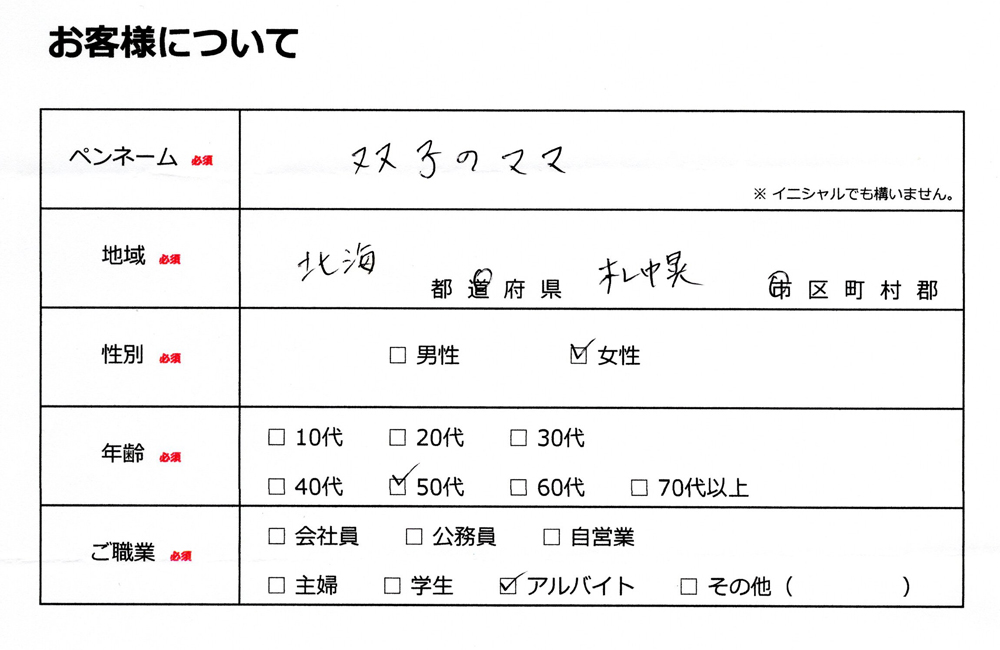 お客様について
ペンネーム 必須 双子のママ
※ イニシャルでも構いません。
地域 必須 北海 都 道 府 県 札幌 市 区 町 村 郡
性別 必須 □ 男性 ☑ 女性
年齢 必須
□ 10代 □ 20代 □ 30代
□ 40代 ☑ 50代 □ 60代 □ 70代以上
ご職業 必須
□ 会社員 □ 公務員 □ 自営業
□ 主婦 □ 学生 ☑ アルバイト □ その他（ ）